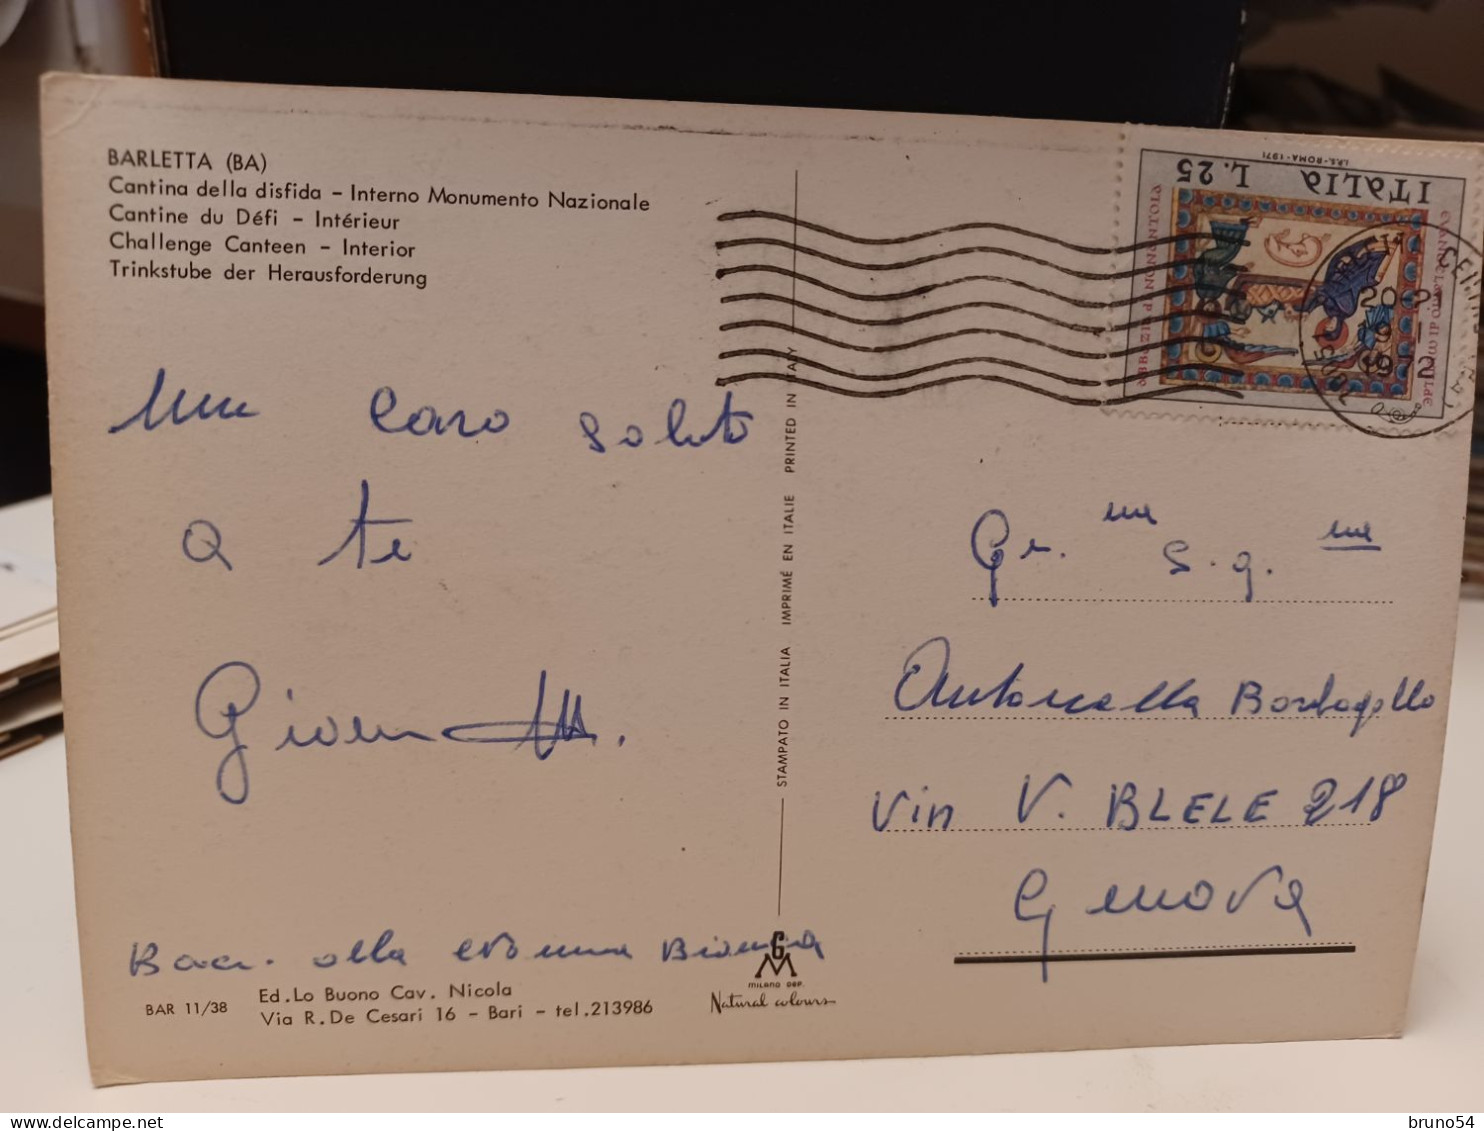 BARLETTA (BA)
Cantina della disfida - Interno Monumento Nazionale
Cantine du Défi - Intérieur
Challenge Canteen - Interior
Trinkstube der Herausforderung
Un caro saluto
a te
Baci alla Bianca
BAR 11/38
Ed. Lo Buono Cav. Nicola
Via R. De Cesari 16 - Bari - tel. 213986
STAMPATO IN ITALIA IMPRIMÉ EN ITALIE PRINTED IN ITALY
GM
MILANO DEP.
Natural colours
I.P.S. - ROMA - 1971
ITALIA L. 25
ABBAZIA DI NONANTOLA
EVANGELARIO DI MATILDE
20-2
19
1972
Gr. ma S.g. na
Antonella Bordogello
Via V. BLELE 218
Genova
bruno54